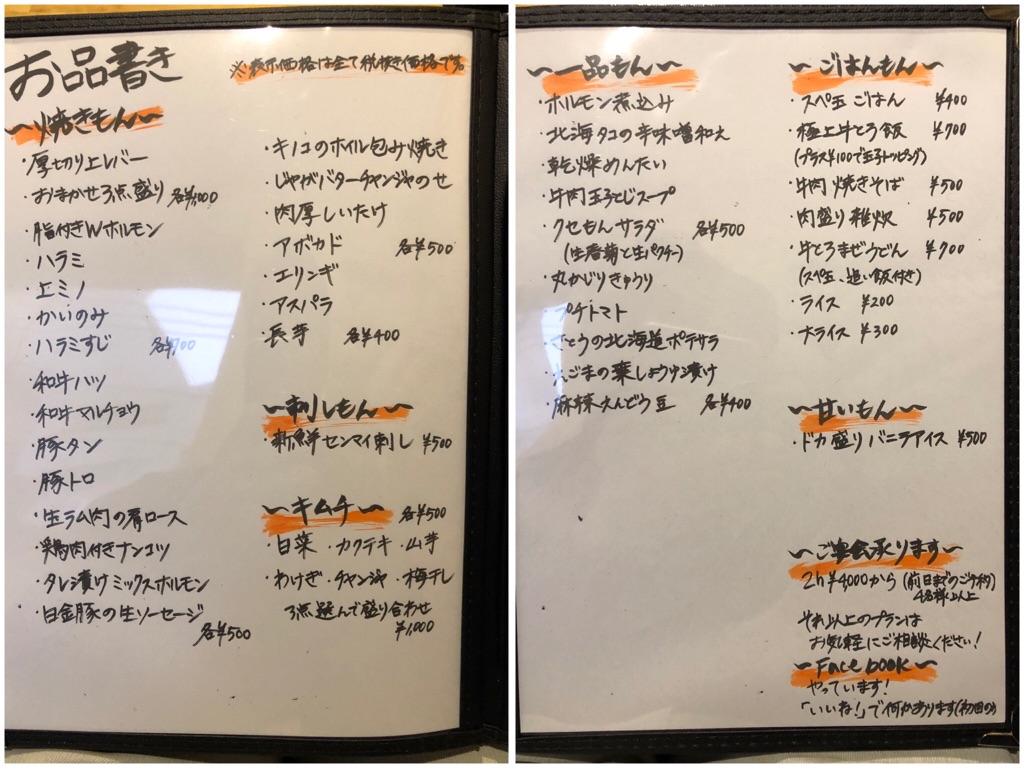 お品書き
※表示価格は全て税抜き価格です。
〜焼きもん〜
・厚切り上レバー
・おまかせ3点盛り 各¥1,000
・脂付きWホルモン
・ハラミ
・上ミノ
・かいのみ
・ハラミすじ 各¥700
・和牛ハツ
・和牛マルチョウ
・豚タン
・豚トロ
・生ラム肉の肩ロース
・鶏肉付きナンコツ
・タレ漬けミックスホルモン
・白金豚の生ソーセージ
各¥500
・キノコのホイル包み焼き
・じゃがバターチャンジャのせ
・肉厚しいたけ
・アボカド 各¥500
・エリンギ
・アスパラ
・長芋 各¥400
〜刺しもん〜
・新鮮センマイ刺し ¥500
〜キムチ〜 各¥500
・白菜・カクテキ・山芋
・わけぎ・チャンジャ・梅干し
3点選んで盛り合わせ
¥1,000
〜一品もん〜
・ホルモン煮込み
・北海タコの辛味噌和え
・乾燥めんたい
・牛肉玉子とじスープ
・クセもんサラダ 各¥500
(生春菊と生パクチー)
・丸かじりきゅうり
プチトマト
・さとうの北海道ポテサラ
・えごまの葉しょうゆ漬け
・麻辣えんどう豆 各¥400
〜ごはんもん〜
・スペ玉ごはん ¥400
・極上牛とろ飯 ¥700
(プラス¥100で玉子トッピング)
・牛肉焼きそば ¥500
・肉盛り雑炊 ¥500
・牛とろまぜうどん ¥700
(スペ玉、追い飯付き)
・ライス ¥200
・大ライス ¥300
〜甘いもん〜
・ドカ盛りバニラアイス ¥500
〜ご宴会承ります〜
2h¥4,000から(前日までのご予約
4名様以上)
それ以上のプランは
お気軽にご相談ください!
〜Facebook〜
やっています!
「いいね!」で何かあります(初回のみ)